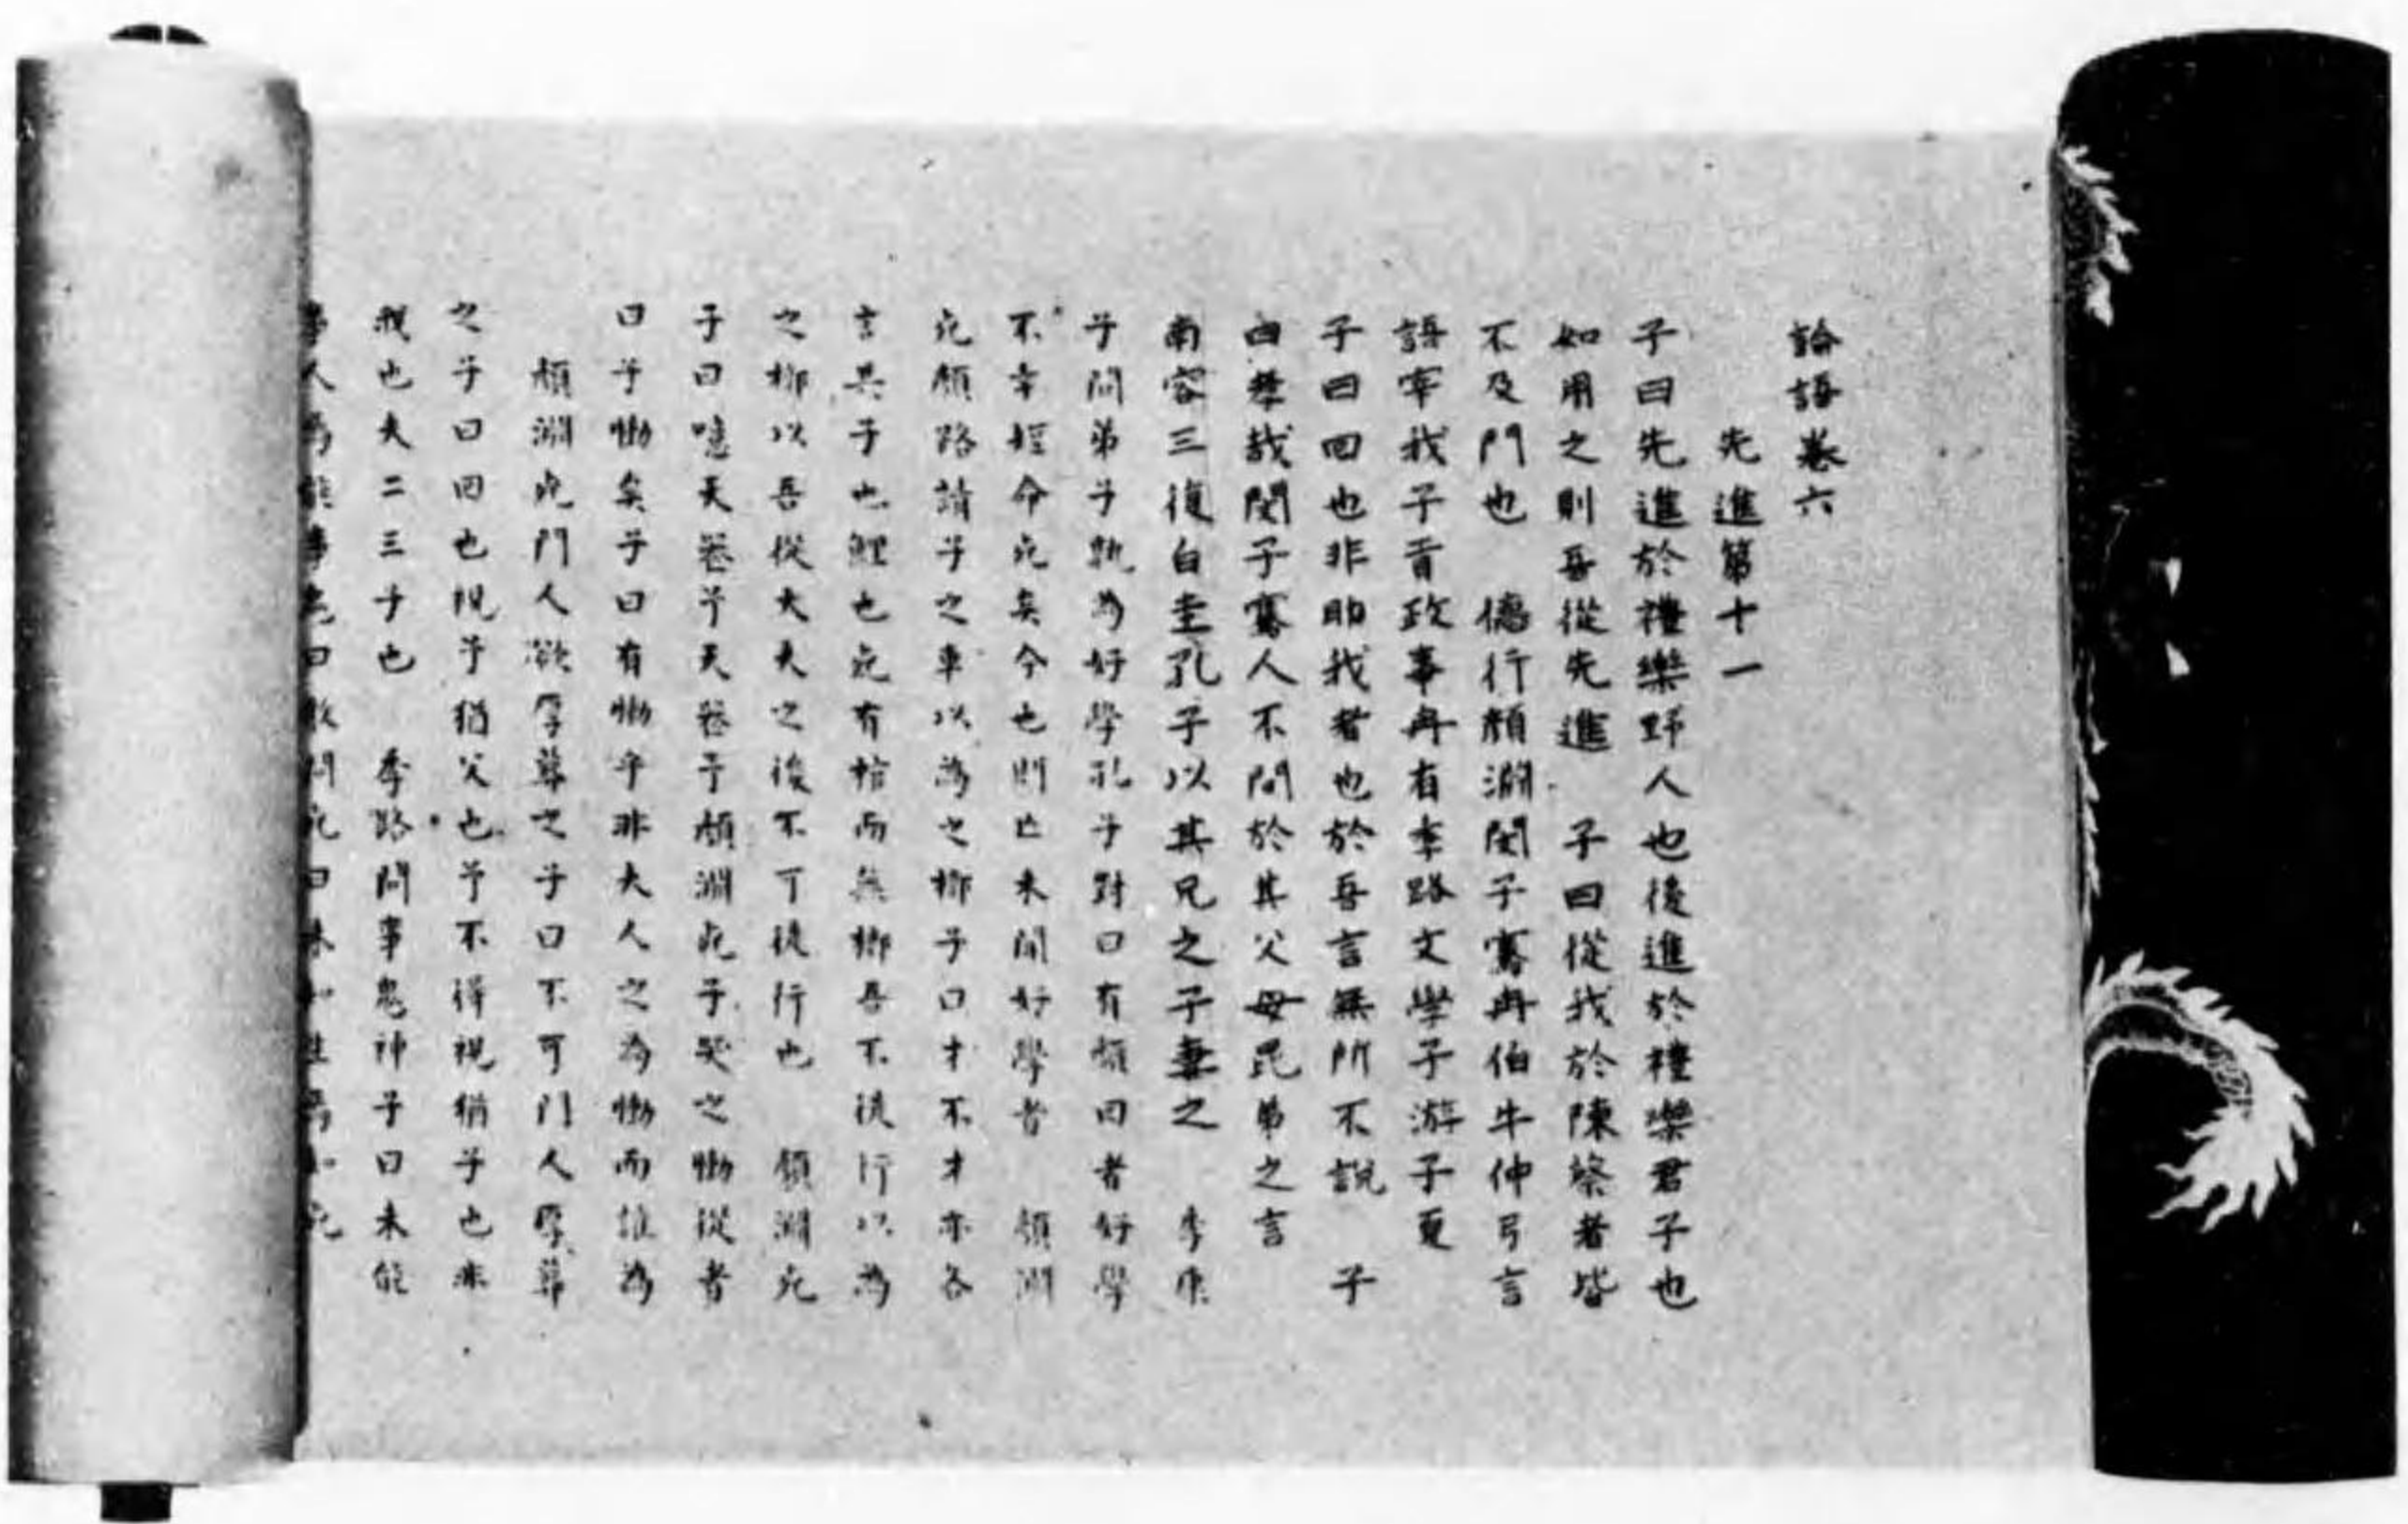 論語卷六
先進第十一
子曰先進於禮樂野人也後進於禮樂君子也
如用之則吾從先進　子曰從我於陳蔡者皆
不及門也　德行顏淵閔子騫冉伯牛仲弓言
語宰我子貢政事冉有季路文學子游子夏
子曰回也非助我者也於吾言無所不說　子
曰孝哉閔子騫人不間於其父母昆弟之言
南容三復白圭孔子以其兄之子妻之　季康
子問弟子孰為好學孔子對曰有顏回者好學
不幸短命死矣今也則亡未聞好學者　顏淵
死顏路請子之車以為之槨子曰才不才亦各
言其子也鯉也死有棺而無槨吾不徒行以為
之槨以吾從大夫之後不可徒行也　顏淵死
子曰噫天喪予天喪予顏淵死子哭之慟從者
曰子慟矣子曰有慟乎非夫人之為慟而誰為
顏淵死門人欲厚葬之子曰不可門人厚葬
之子曰回也視予猶父也予不得視猶子也非
我也夫二三子也　季路問事鬼神子曰未能
事人焉能事鬼曰敢問死曰未知生焉知死